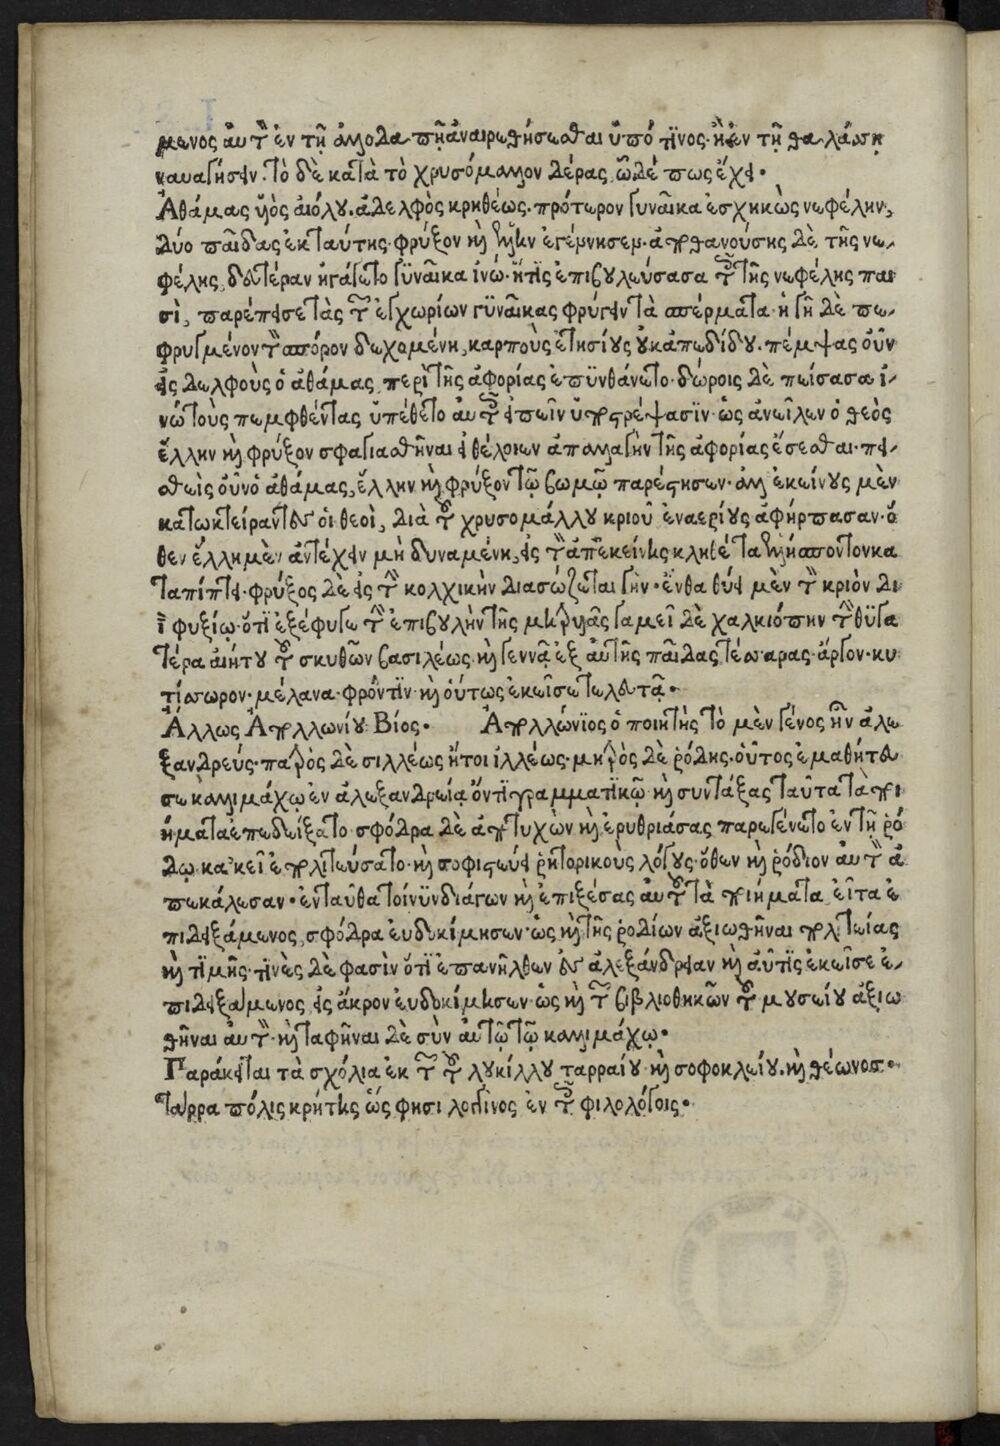 μενος αὐτὸν ἐν τῇ ἀλλοδαπῇ ἀναιρεθήσεσθαι ὑπό τινος· ἢ ἐν τῇ θαλάσσῃ
ναυαγήσειν. τὸ δὲ κατὰ τὸ χρυσόμαλλον δέρας, ὧδέ πως ἔχει·
Ἀθάμας υἱὸς αἰόλου. ἀδελφὸς κρηθέως. πρότερον γυναῖκα ἐσχηκὼς νεφέλην,
δύο παῖδας ἐκ ταύτης· φρύξον καὶ ἕλλην ἐγέννησεν. ἀποθανούσης δὲ τῆς νε-
φέλης, δευτέραν ἠγάγετο γυναῖκα ἰνώ. ἥτις ἐπιβουλεύσασα τοῖς τῆς νεφέλης παι
σὶ, παρέπεισε τὰς τῶν ἐγχωρίων γυναῖκας φρύγειν τὰ σπέρματα· ἡ γῆ δὲ πε-
φρυγμένον τὸν σπόρον δεχομένη, καρποὺς ἐτησίους οὐκ ἀπεδίδου. πέμψας οὖν
εἰς δελφοὺς ὁ ἀθάμας, περὶ τῆς ἀφορίας ἐπυνθάνετο· δώροις δὲ πείσασα ἰ-
νώ τοὺς πεμφθέντας ὑπέθετο αὐτοῖς εἰπεῖν ὑποστρέψασιν· ὡς ἀνεῖλεν ὁ θεὸς
ἕλλην καὶ φρύξον σφαγιασθῆναι εἰ θέλοιεν ἀπαλλαγὴν τῆς ἀφορίας ἔσεσθαι· πει-
σθεὶς οὖν ὁ ἀθάμας, ἕλλην καὶ φρύξον τῷ βωμῷ παρέστησεν· ἀλλ' ἐκείνους μὲν
κατοικτείραντες οἱ θεοὶ, διὰ τοῦ χρυσομάλλου κριοῦ ἐναερίους ἀφήρπασαν· ὅ
θεν ἕλλη μὲν ἀντέχειν μὴ δυναμένη, εἰς τὸν ἀπ' ἐκείνης κληθέντα ἑλλήσποντον κα
ταπίπτει· φρύξος δὲ εἰς τὴν κολχικὴν διασώζεται γῆν· ἔνθα θύει μὲν τὸν κριὸν δι
ῒ φυξίῳ· ὅτι ἐξέφυγε τὴν ἐπιβουλὴν τῆς μητρυιᾶς γαμεῖ δὲ χαλκιόπην τὴν θυγα
τέρα αἰήτου τοῦ σκυθῶν βασιλέως, καὶ γεννᾷ ἐξ αὐτῆς παῖδας τέσσαρας· ἄργον· κυ
τίσωρον· μέλανα· φρόντιν· καὶ οὕτως ἐκεῖσε τελευτᾷ·
Ἄλλως Ἀπολλωνίου Βίος· Ἀπολλώνιος ὁ ποιητὴς τὸ μὲν γένος ἦν ἀλε
ξανδρεύς· πατρὸς δὲ σιλλέως ἤτοι ἰλλέως· μητρὸς δὲ ῥόδης· οὗτος ἐμαθήτευ
σε καλλιμάχῳ ἐν ἀλεξανδρείᾳ ὄντι γραμματικῷ, καὶ συντάξας ταῦτα τὰ ποι
ήματα ἐπεδείξατο· σφόδρα δὲ ἀποτυχὼν καὶ ἐρυθριάσας παρεγένετο ἐν τῇ ῥό
δῳ κἀκεῖ ἐπολιτεύσατο· καὶ σοφιστεύει ῥητορικοὺς λόγους· ὅθεν καὶ ῥόδιον αὐτὸν ἀ
πεκάλεσαν· ἐνταῦθα τοίνυν διάγων καὶ ἐπιξέσας αὐτοῦ τὰ ποιήματα, εἶτα ἐ
πιδειξάμενος, σφόδρα εὐδοκίμησεν· ὡς καὶ τῆς ῥοδίων ἀξιωθῆναι πολιτείας
καὶ τιμῆς· τινὲς δὲ φασὶν ὅτι ἐπανῆλθεν ἐν ἀλεξάνδρειαν καὶ αὖτις ἐκεῖσε ἐ-
πιδειξάμενος, εἰς ἄκρον εὐδοκίμησεν· ὡς καὶ τῶν βιβλιοθηκῶν τοῦ μουσείου ἀξιω
θῆναι αὐτὸν· καὶ ταφῆναι δὲ σὺν αὐτῷ τῷ καλλιμάχῳ·
Παράκειται τὰ σχόλια ἐκ τῶν τοῦ λουκίλλου ταρραίου· καὶ σοφοκλείου. καὶ θέωνος·
Τάρρα πόλις κρήτης ὥς φησι λογγῖνος ἐν τοῖς φιλολόγοις·